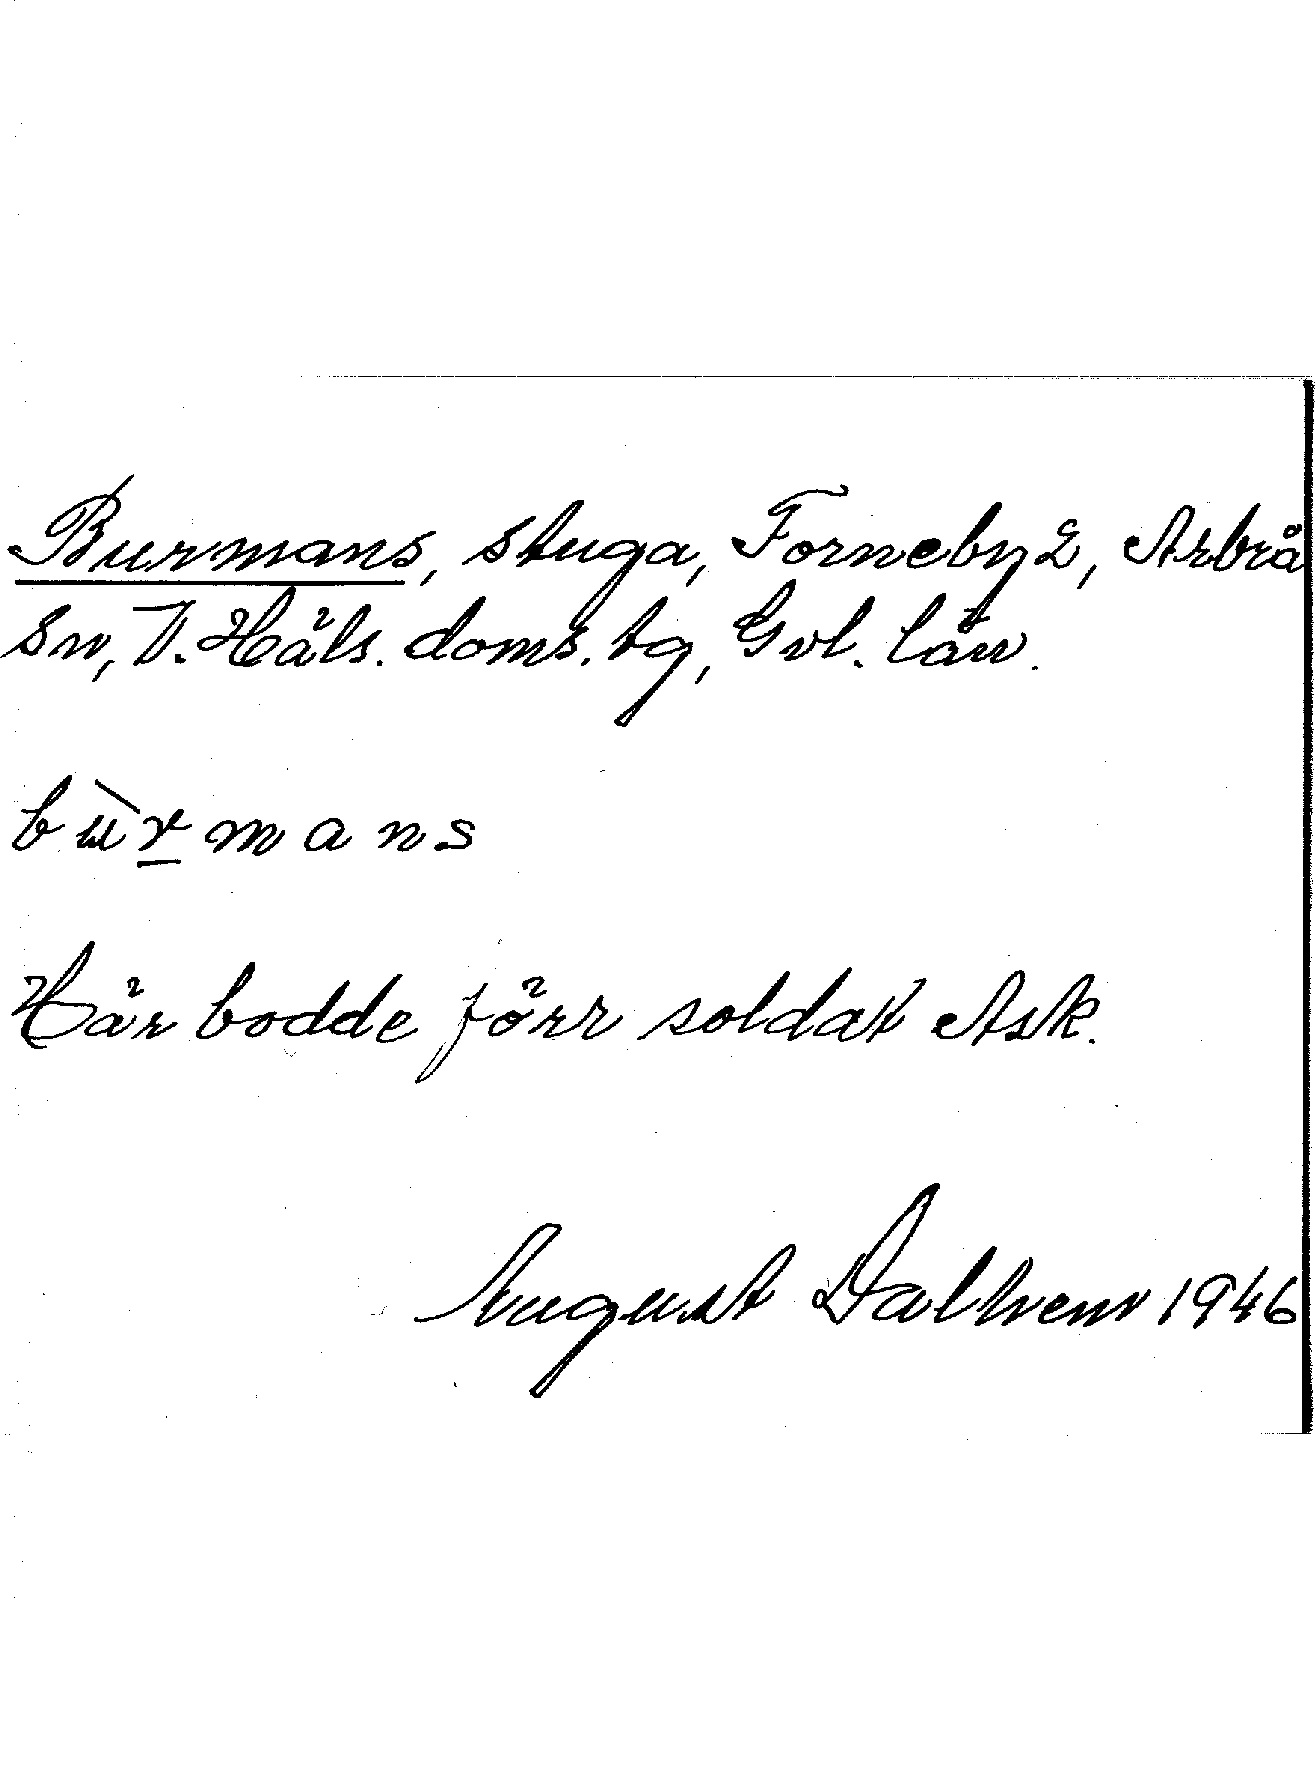 Burmans, stuga, Forneby 2, Arbrå
sn, V. Häls. doms. bg, Gvl. län.
bùrmans
Här bodde förr soldat Ask.
August Dalhem 1946